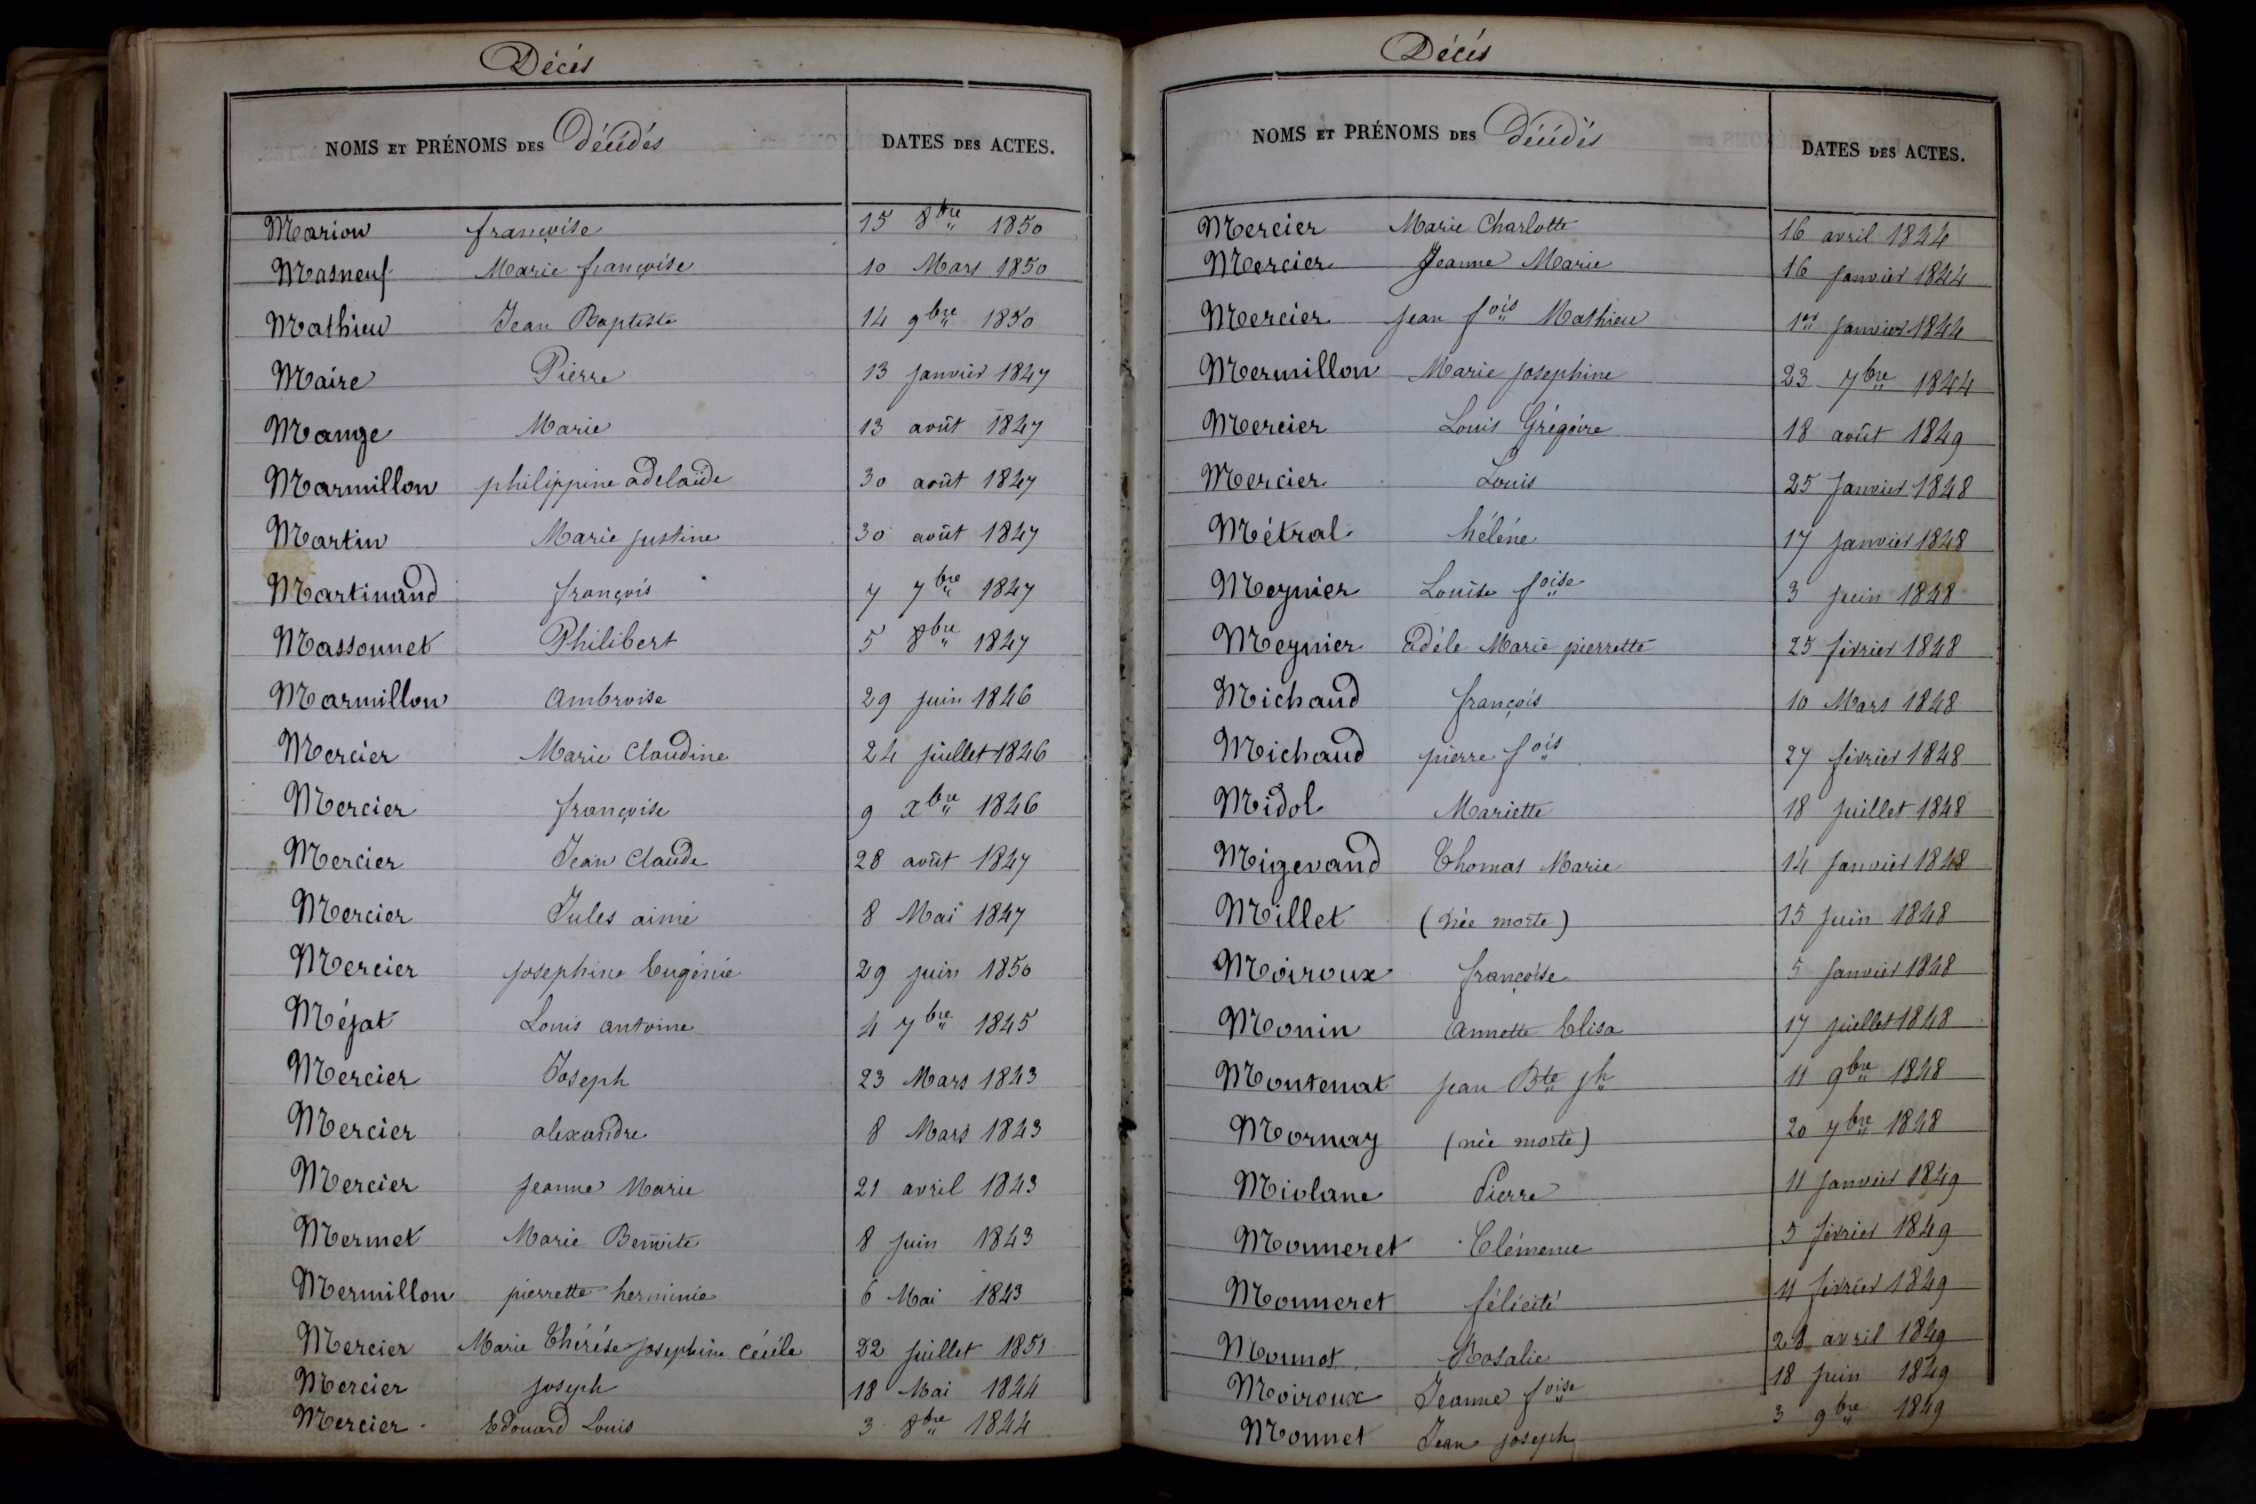 Décès
NOMS ET PRÉNOMS DES Décédés DATES DES ACTES.
Marion françoise 15 8bre 1850
Masneuf Marie françoise 10 Mars 1850
Mathieu Jean Baptiste 14 9bre 1850
Maire Pierre 13 janvier 1847
Mange Marie 13 août 1847
Marmillon philippine adelaïde 30 août 1847
Martin Marie justine 30 août 1847
Martinand françois 7 7bre 1847
Massonnet Philibert 5 8bre 1847
Marmillon ambroise 29 juin 1846
Mercier Marie Claudine 24 juillet 1846
Mercier françoise 9 xbre 1846
Mercier Jean Claude 28 août 1847
Mercier Jules aimé 8 Mai 1847
Mercier josephine Eugénie 29 juin 1850
Mézat Louis antoine 4 7bre 1845
Mercier Joseph 23 Mars 1843
Mercier alexandre 8 Mars 1843
Mercier jeanne Marie 21 avril 1843
Mermet Marie Benoite 8 juin 1843
Mermillon pierrette herminie 6 Mai 1843
Mercier Marie Thérèse josephine Cécile 22 juillet 1851
Mercier joseph 18 Mai 1844
Mercier Edouard Louis 3 8bre 1844
Décès
NOMS ET PRÉNOMS DES Décédés DATES DES ACTES.
Mercier Marie Charlotte 16 avril 1844
Mercier Jeanne Marie 16 janvier 1844
Mercier jean fois Mathieu 1er janvier 1844
Mermillon Marie josephine 23 7bre 1844
Mercier Louis Grégoire 18 août 1849
Mercier Louis 25 janvier 1848
Métral hélène 17 janvier 1848
Meynier Louise foise 3 juin 1848
Meynier Adèle Marie pierrette 25 février 1848
Michaud françois 10 Mars 1848
Michaud pierre fois 27 février 1848
Midol Mariette 18 juillet 1848
Migevand Thomas Marie 14 janvier 1848
Millet (née morte) 15 juin 1848
Moiroux françoise 5 janvier 1848
Monin annette Elisa 17 juillet 1848
Montenat jean Bte jh 11 9bre 1848
Mornay (née morte) 20 7bre 1848
Miolane Pierre 11 janvier 1849
Monneret Clémence 5 février 1849
Monneret félicité 11 février 1849
Monnot Rosalie 28 avril 1849
Moiroux Jeanne foise 18 juin 1849
Monnet Jean joseph 3 9bre 1849